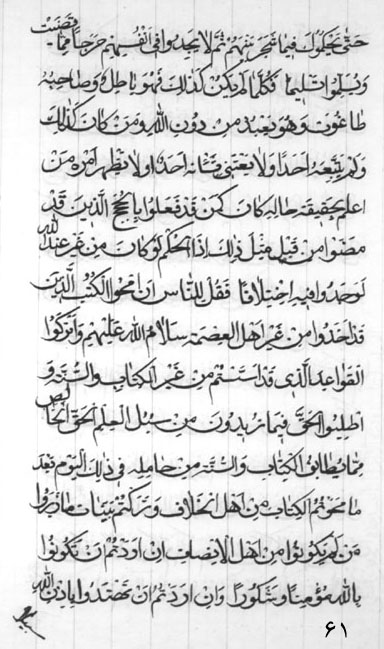 حتی یحکموک فیما شجر بینهم ثم لا یجدوا فی انفسهم حرجا مما قضیت
و یسلموا تسلیما فکلما لم یکن کذلک فهو باطل و صاحبه
طاغوت و هو یعبد من دون الله و من کان کذلک
و لم یتبعه احدا و لا یعتنی بشانه احد او لا تظهر امره من
اعلم بحقیقة حاله کان کمن قد فعلوا بالحجج الذین قد
مضوا من قبل مثل ذلک اذا الحکم لو کان من غیر عند الله
لوجدوا فیه اختلافا فقل للناس ان امحوا الکتب الذین
قد اخذوا من غیر اهل العصمة سلام الله علیهم و اترکوا
القواعد الذی قد استنتم من غیر الکتاب و السنة و
اطلبوا الحق فیما تریدون من سبل العلم الحق الخالص
مما یطابق الکتاب و السنة من حامله فی ذلک الیوم فبعد
ما محوتم الکتاب من اهل الخلاف و ترکتم بینات ما
من لم یکونوا من اهل الانصاف ان اردتم ان تکونوا
بالله مؤمنا و شکورا و ان اردتم ان تهتدوا باذن الله
۶۱